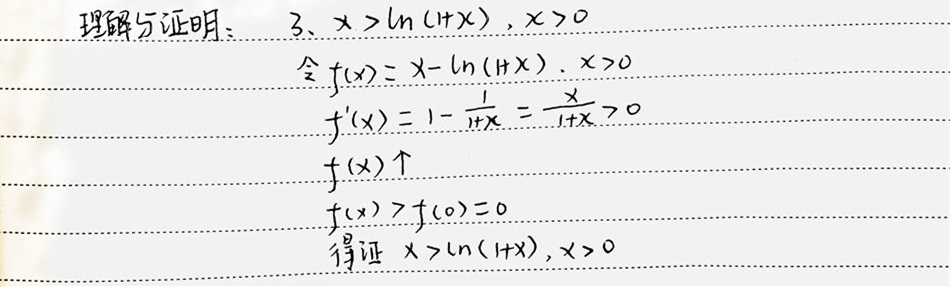 理解与证明: 3、x>ln(1+x),x>0
令f(x)=x-ln(1+x). x>0
f'(x)=1-\frac{1}{1+x}=\frac{x}{1+x}>0
f(x)↑
f(x)>f(0)=0
得证 x>ln(1+x),x>0